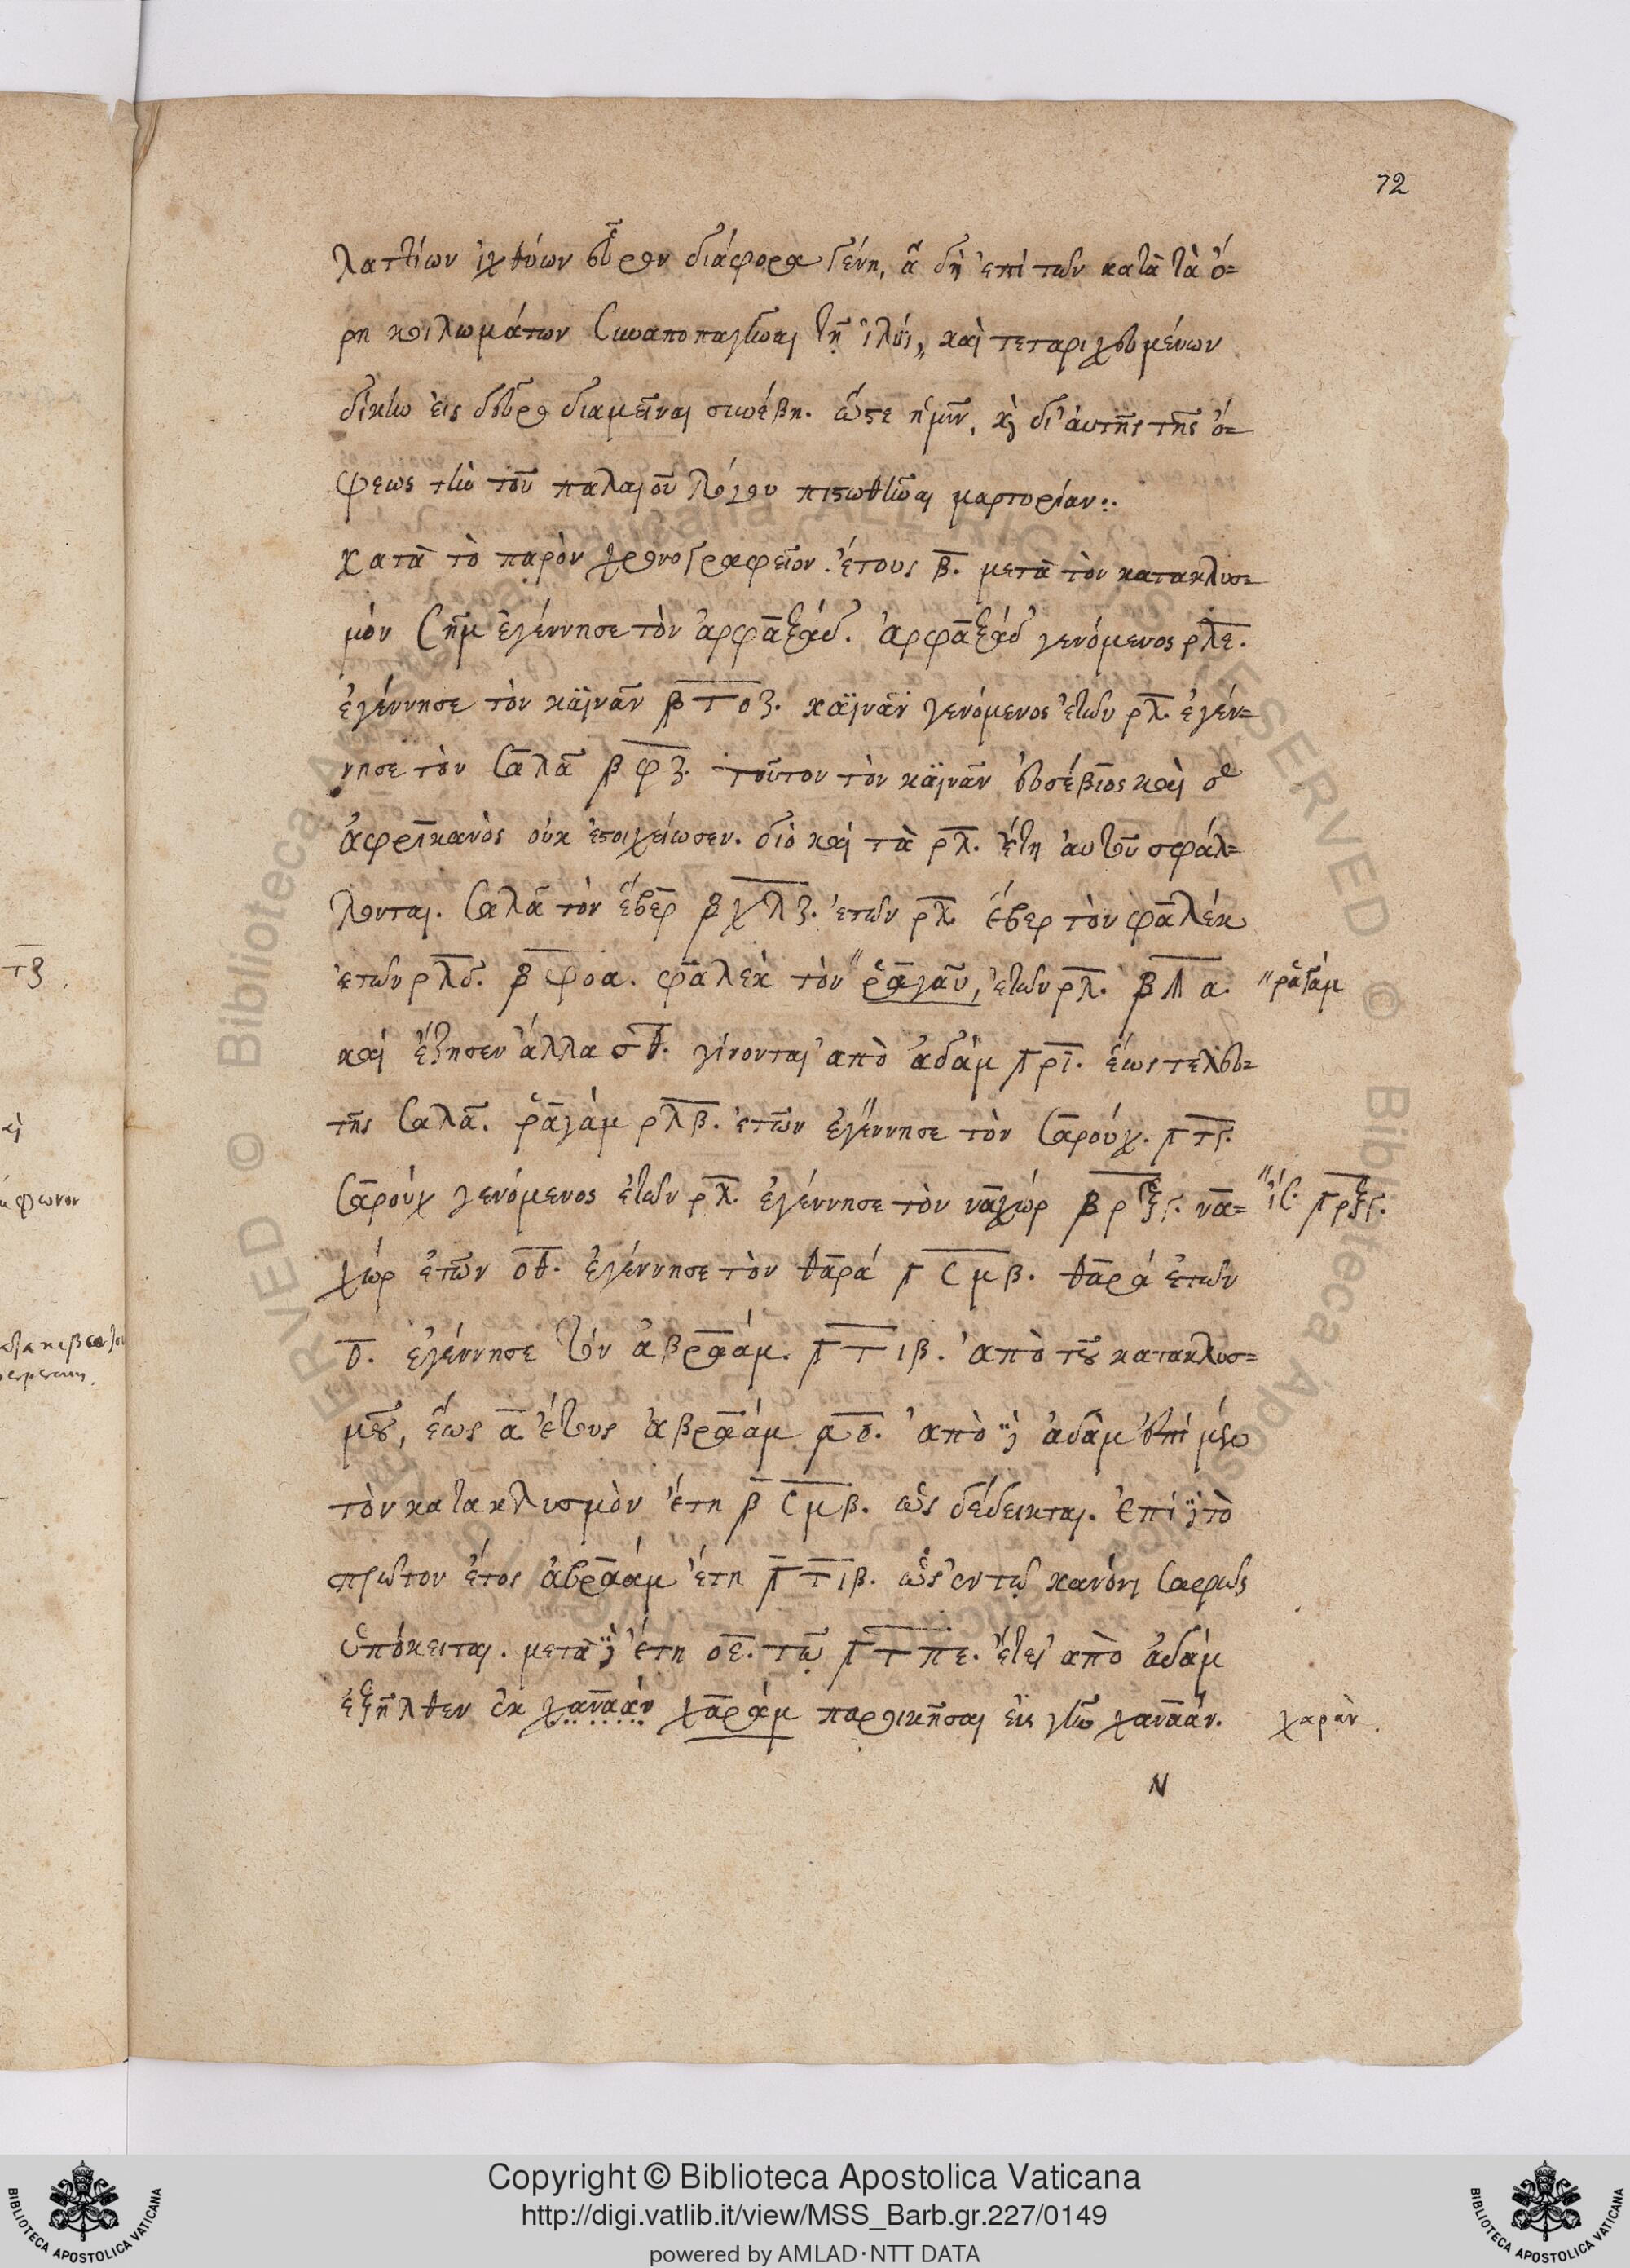 72
λαττίων ἰχθύων εὗρον διάφορα γένη, ἃ δὴ ἐπὶ τῶν κατὰ τὰ ὄ-
ρη κοιλωμάτων συναποπαγῆναι τῇ ἰλύϊ, καὶ τεταριχευμένων
δίκην εἰς δεῦρο διαμεῖναι συνέβη. ὥστε ἡμῖν, καὶ δι' αὐτῆς τῆς ὄ-
ψεως τὴν τοῦ παλαιοῦ λόγου πιστωθῆναι μαρτυρίαν:.
κατὰ τὸ παρὸν χρονογραφεῖον. ἔτους β̅. μετὰ τὸν κατακλυσ-
μὸν Σὴμ ἐγέννησε τὸν ἀρφαξάδ. ἀρφαξὰδ γενόμενος ρλε.
ἐγέννησε τὸν καϊνᾶν βτοζ. καϊνᾶν γενόμενος ἐτῶν ρλ. ἐγέν-
νησε τὸν Σαλᾶ βφζ. τοῦτον τὸν καϊνᾶν εὐσέβιος καὶ ὁ
ἀφρικανὸς οὐκ ἐστοιχείωσεν. διὸ καὶ τὰ ρλ. ἔτη αὐτοῦ σφάλ-
λονται. Σαλᾶ τὸν ἕβερ βχλζ. ἐτῶν ρλ ἕβερ τὸν φαλέκ
ἐτῶν ρλδ. βφοα. φαλὲκ τὸν " ῥαγαῦ, ἐτῶν ρλ. βϡα. " ῥαγὰμ
καὶ ἔζησεν ἄλλα σθ. γίνονται ἀπὸ ἀδὰμ γρι. ἕως τελευ-
τῆς Σαλᾶ. ῥαγὰμ ρλβ. ἐτῶν ἐγέννησε τὸν Σαρούχ. γτϛ.
Σαροὺχ γενόμενος ἐτῶν ρλ. ἐγέννησε τὸν ναχώρ βρξϛ. να- " ἴσ. γρξϛ.
χὼρ ἐτῶν οθ. ἐγέννησε τὸν θαρά γσμβ. θαρὰ ἐτῶν
ο. ἐγέννησε τὸν ἀβραάμ. γτιβ. ἀπὸ τοῦ κατακλυσ-
μοῦ, ἕως α ἔτους ἀβραάμ αο. ἀπὸ δὲ ἀδὰμ ἐπὶ μὲν
τὸν κατακλυσμὸν ἔτη βσμβ. ὡς δέδεικται. ἐπὶ δὲ τὸ
πρῶτον ἔτος ἀβραάμ ἔτη γτιβ. ὡς ἐν τῷ κανόνι σαφῶς
ὑπόκειται. μετὰ δὲ ἔτη οε. τῷ γτπε. ἔτει ἀπὸ ἀδάμ
ἐξῆλθεν ἐκ χαναάν χαρὰμ παροικῆσαι εἰς γῆν χαναάν. χαρὰν.
N
Copyright © Biblioteca Apostolica Vaticana
http://digi.vatlib.it/view/MSS_Barb.gr.227/0149
powered by AMLAD·NTT DATA